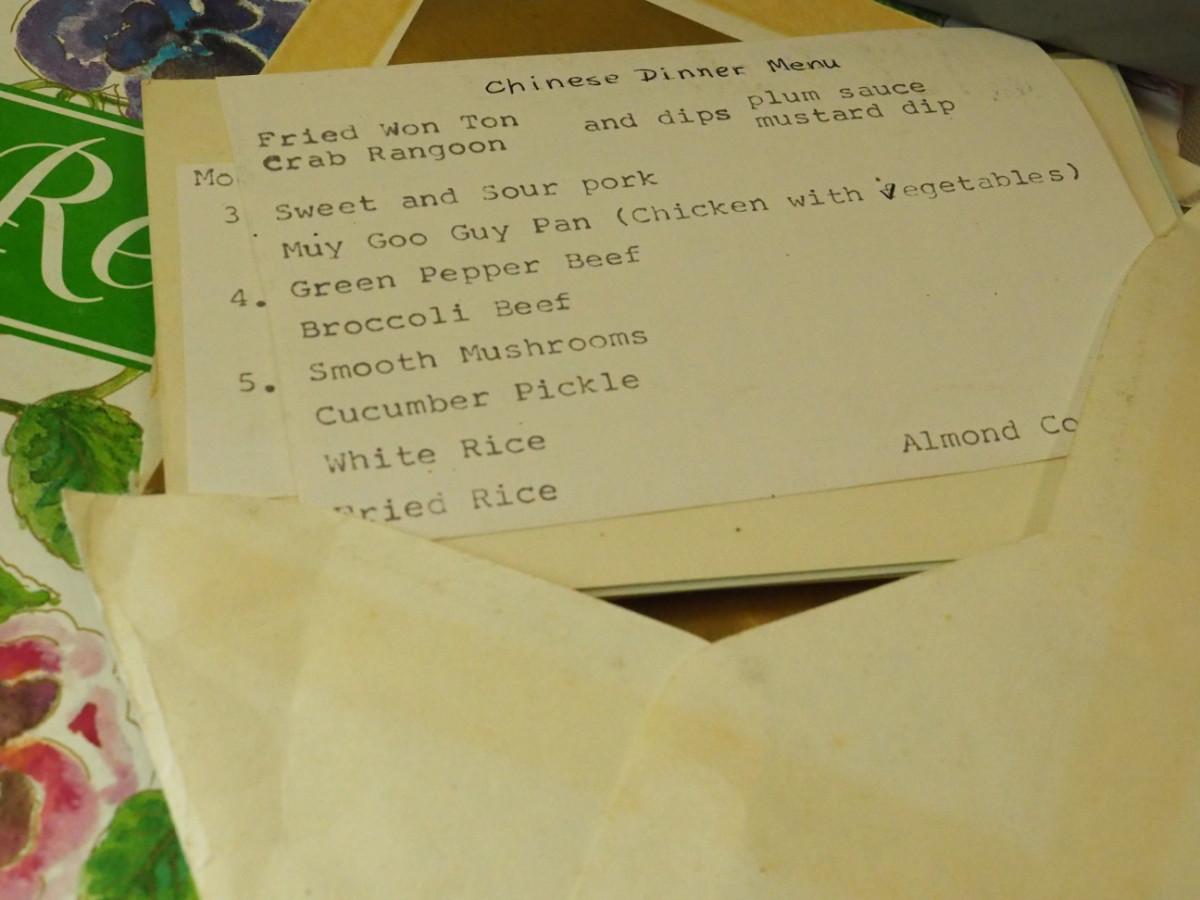 Chinese Dinner Menu
Fried Won Ton and dips plum sauce
Crab Rangoon mustard dip
Sweet and Sour pork
Muy Goo Guy Pan (Chicken with Vegetables)
Green Pepper Beef
Broccoli Beef
Smooth Mushrooms
Cucumber Pickle
White Rice
Fried Rice
Almond Co
Mo
3
4.
5.
Re